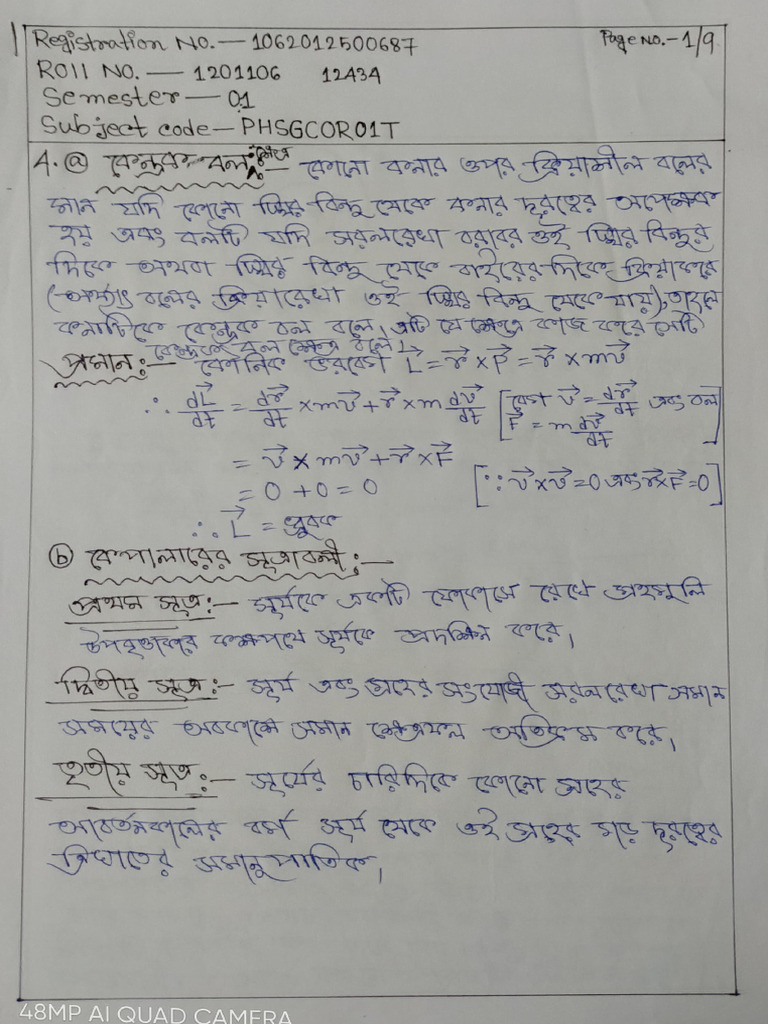 Registration No. — 1062012500687 Page No. - 1/9
Roll No. — 1201106 12434
Semester — 01
Subject code — PHSGCOR01T
4. ⓐ কেন্দ্রক বল ক্ষেত্র :— কোনো কনার ওপর ক্রিয়াশীল বলের
মান যদি কোনো স্থির বিন্দু থেকে কনার দূরত্বের অপেক্ষক
হয় এবং বলটি যদি সরলরেখা বরাবর ওই স্থির বিন্দুর
দিকে অথবা স্থির বিন্দু থেকে বাইরের দিকে ক্রিয়াকরে
(অর্থাৎ বলের ক্রিয়ারেখা ওই স্থির বিন্দু থেকে যায়), তাহলে
কনাটিকে কেন্দ্রক বল বলে। এটি যে ক্ষেত্রে কাজ করে সেটি
কেন্দ্রক বল ক্ষেত্র বলে।
প্রমান :— কৌনিক ভরবেগ L⃗ = r⃗ × P⃗ = r⃗ × mv⃗
∴ dL⃗/dt = dr⃗/dt × mv⃗ + r⃗ × m dv⃗/dt [বেগ v⃗ = dr⃗/dt এবং বল F⃗ = m dv⃗/dt]
= v⃗ × mv⃗ + r⃗ × F⃗
= 0 + 0 = 0 [∵ v⃗ × v⃗ = 0 এবং r⃗ × F⃗ = 0]
∴ L⃗ = ধ্রুবক
ⓑ কেপালারের সূত্রাবলী :—
প্রথম সূত্র :— সূর্যকে একটি ফোকাসে রেখে গ্রহগুলি
উপবৃত্তাকার কক্ষপথে সূর্যকে প্রদক্ষিন করে।
দ্বিতীয় সূত্র :— সূর্য এবং গ্রহের সংযোজী সরলরেখা সমান
সময়ের অবকাশে সমান ক্ষেত্রফল অতিক্রম করে।
তৃতীয় সূত্র :— সূর্যের চারিদিকে কোনো গ্রহের
আবর্তনকালের বর্গ সূর্য থেকে ওই গ্রহের গড় দূরত্বের
ত্রিঘাতের সমানুপাতিক।
48MP AI QUAD CAMERA